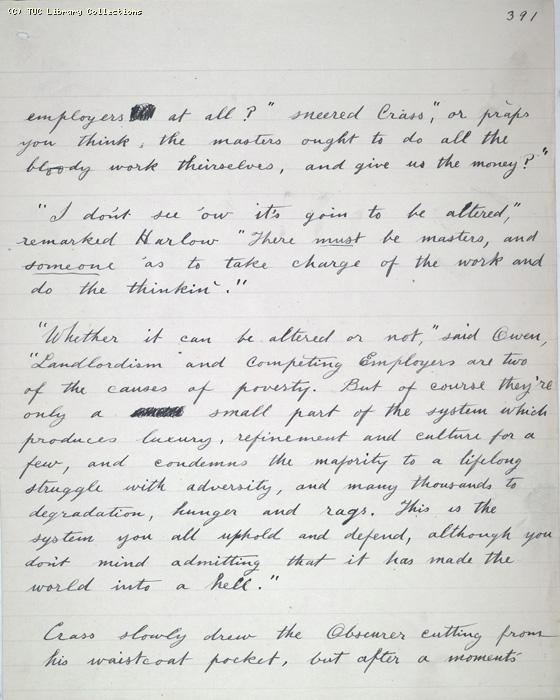 (C) TUC Library Collections
391
employers at all?" sneered Crass", or p'raps
you think, the masters ought to do all the
bloody work theirselves, and give us the money?"
"I don't see 'ow it's goin to be altered,"
remarked Harlow "There must be masters, and
someone 'as to take charge of the work and
do the thinkin'."
"Whether it can be altered or not," said Owen,
"Landlordism and Competing Employers are two
of the causes of poverty. But of course they're
only a small part of the system which
produces luxury, refinement and culture for a
few, and condemns the majority to a lifelong
struggle with adversity, and many thousands to
degradation, hunger and rags. This is the
system you all uphold and defend, although you
don't mind admitting that it has made the
world into a hell."
Crass slowly drew the Obscurer cutting from
his waistcoat pocket, but after a moments